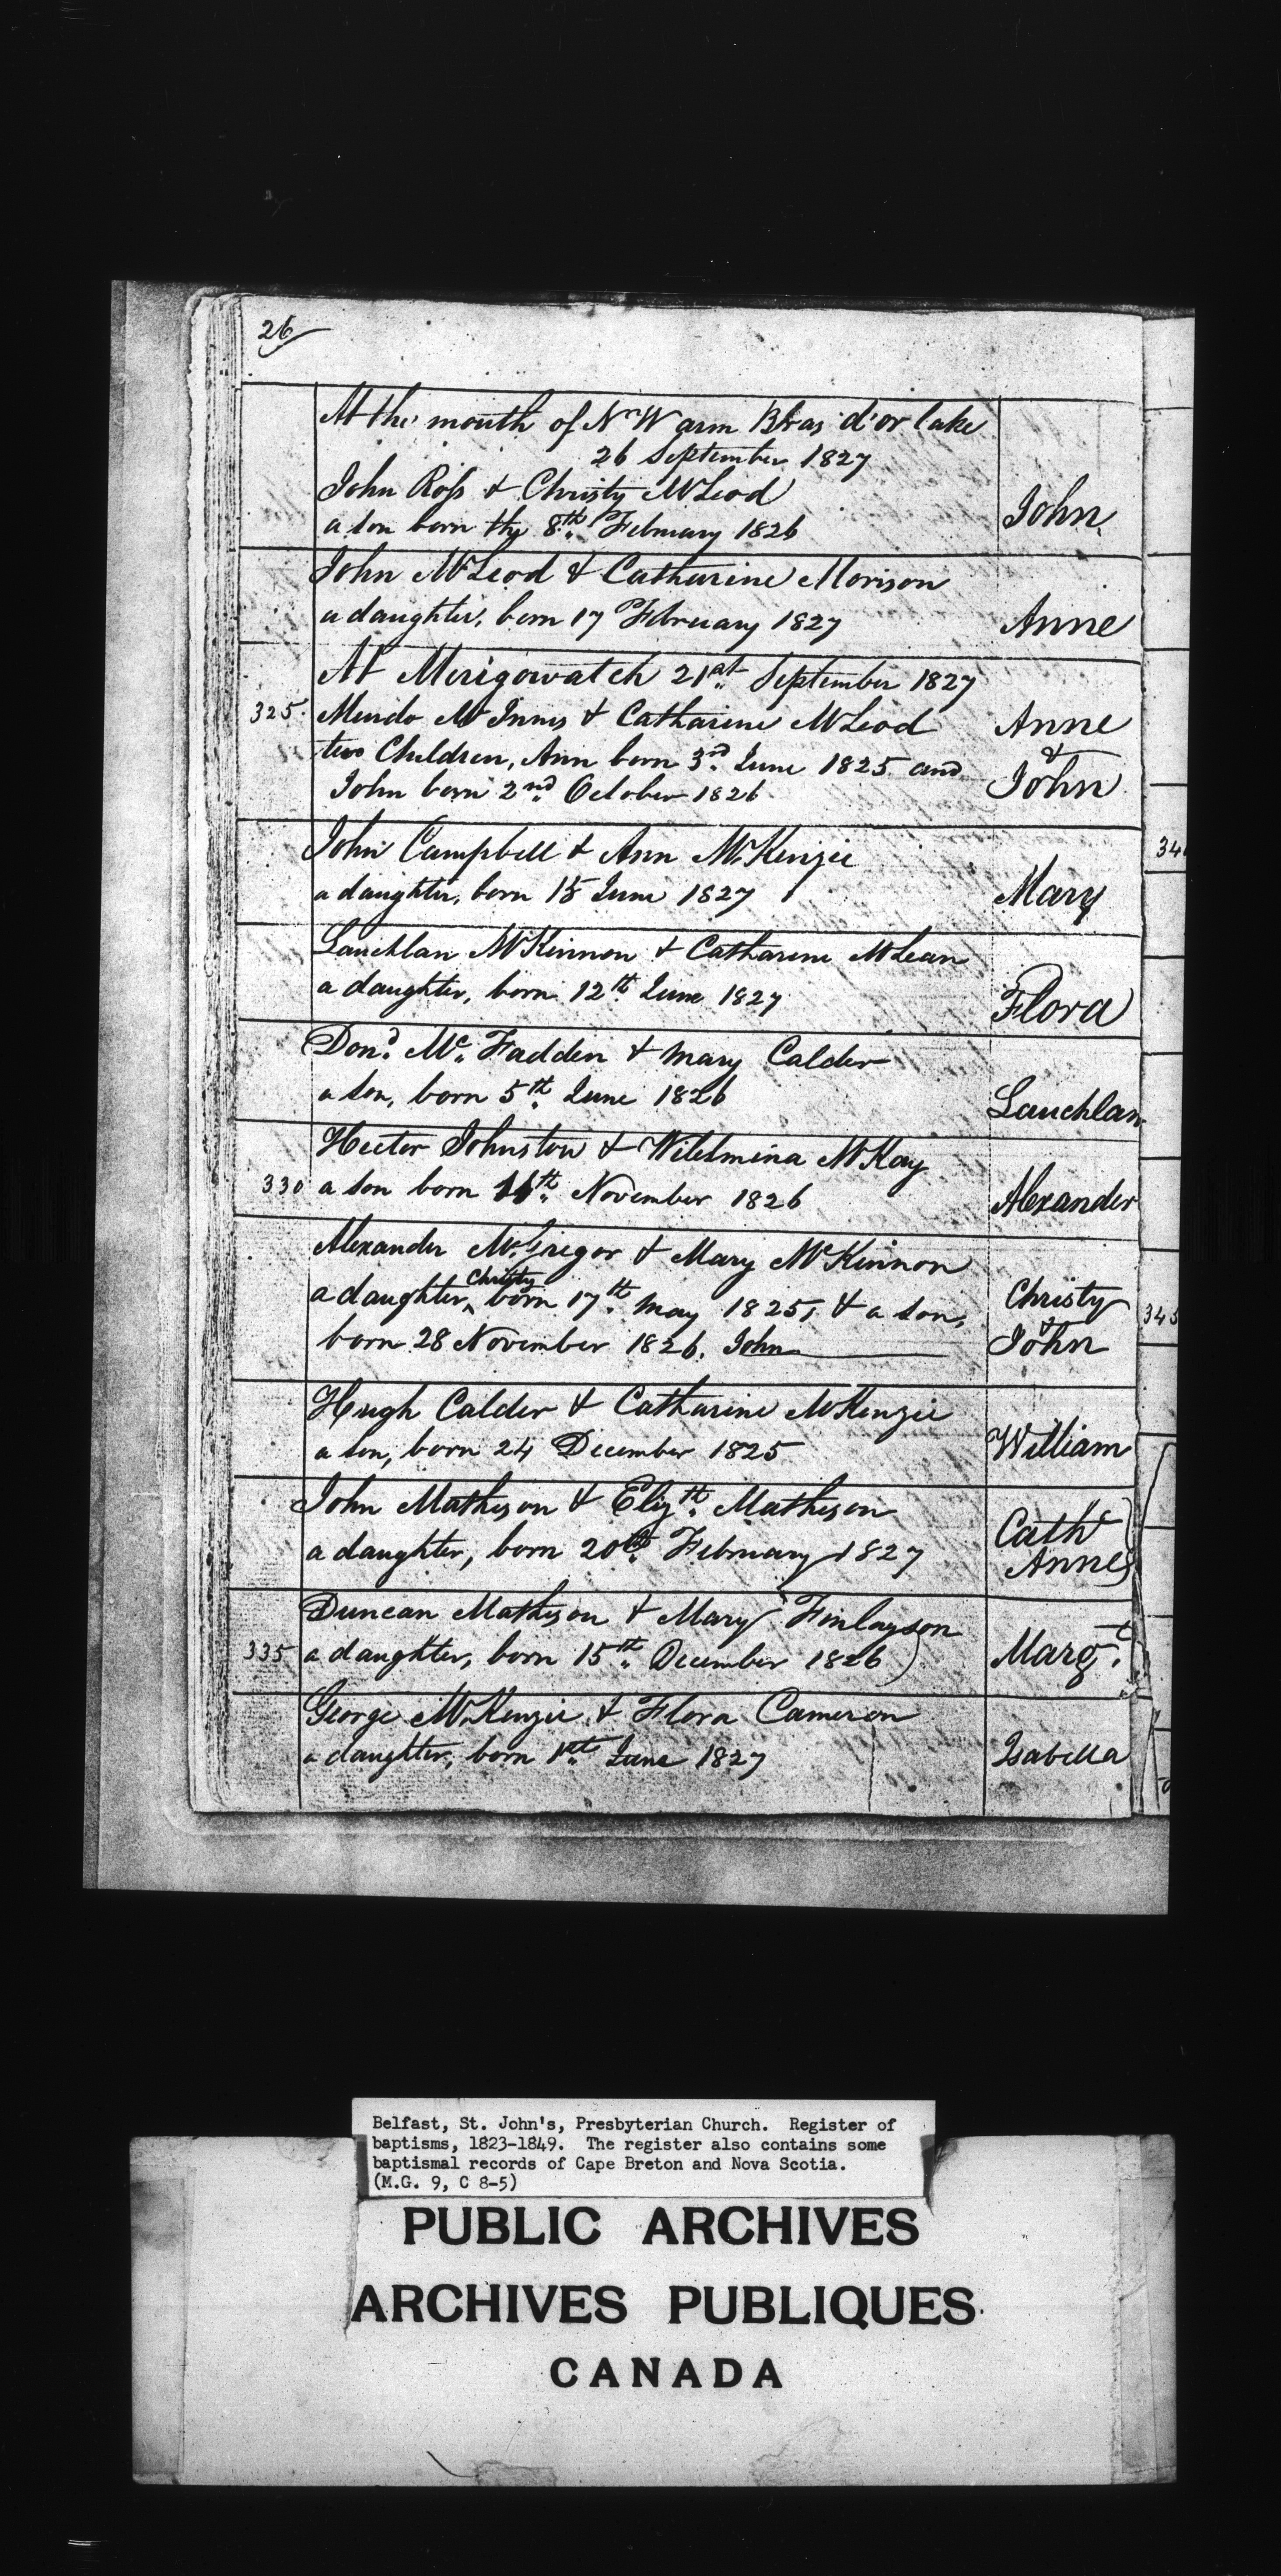 26
At the mouth of Nn W arm Bras d'or lake
26 September 1827
John Ross & Christy McLeod
a son born the 8th February 1826
John
John McLeod & Catharine Morison
a daughter, born 17 February 1827
Anne
At Merigowatch 21st September 1827
325. Murdo McInnis & Catharine McLeod
two Children, Ann born 3rd June 1825 and
John born 2nd October 1826
Anne
&
John
John Campbell & Ann McKenzie
a daughter, born 15 June 1827
Mary
Lauchlan McKinnon & Catharine McLean
a daughter, born 12th June 1827
Flora
Dond McFadden & Mary Calder
a son, born 5th June 1826
Lauchlan
Hector Johnston & Wilelmina McKay
330 a son born 11th November 1826
Alexander
Alexander McGregor & Mary McKinnon
a daughter, Christy born 17th May 1825, & a son,
born 28 November 1826. John
Christy
&
John
Hugh Calder & Catharine McKenzie
a son, born 24 December 1825
William
John Matheson & Elizth Matheson
a daughter, born 20th February 1827
Cathe
Anne
Duncan Matheson & Mary Finlayson
335 a daughter, born 15th December 1826
Margt
George McKenzie & Flora Cameron
a daughter, born 1st June 1827
Isabella
345
Belfast, St. John's, Presbyterian Church. Register of
baptisms, 1823-1849. The register also contains some
baptismal records of Cape Breton and Nova Scotia.
(M.G. 9, C 8-5)
PUBLIC ARCHIVES
ARCHIVES PUBLIQUES
CANADA